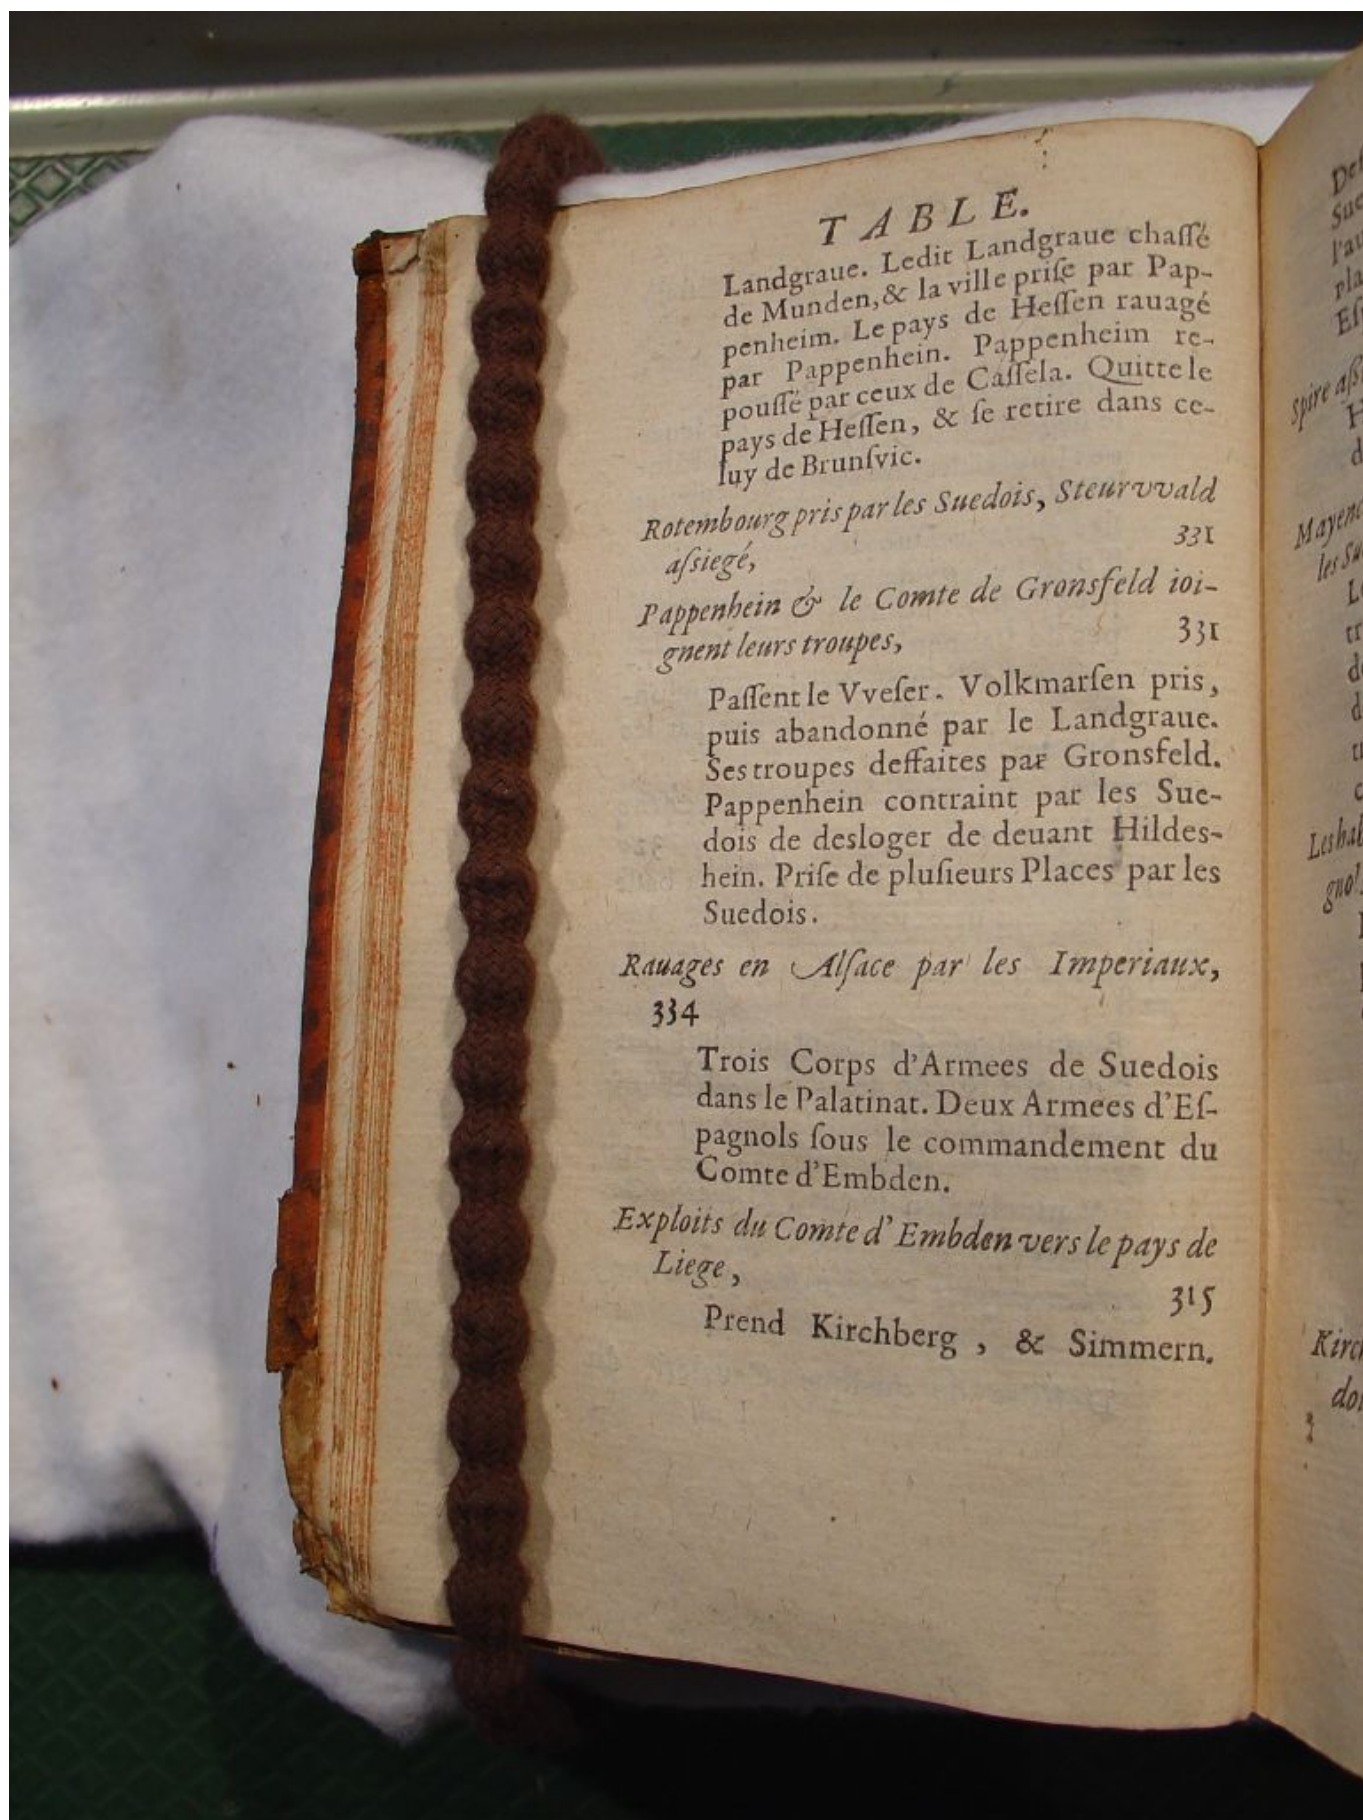 TABLE.
Landgraue. Ledit Landgraue chaſſé
de Munden, & la ville priſe par Pap-
penheim. Le pays de Heſſen rauagé
par Pappenhein. Pappenheim re-
pouſſé par ceux de Caſſela. Quitte le
pays de Heſſen, & ſe retire dans ce-
luy de Brunſvic.
Rotembourg pris par les Suedois, Steurvvald
aſsiegé, 331
Pappenhein & le Comte de Gronsfeld ioi-
gnent leurs troupes, 331
Paſſent le Vveſer. Volkmarſen pris,
puis abandonné par le Landgraue.
Ses troupes deffaites par Gronsfeld.
Pappenhein contraint par les Sue-
dois de desloger de deuant Hildes-
hein. Priſe de pluſieurs Places par les
Suedois.
Rauages en Alſace par les Imperiaux,
334
Trois Corps d'Armees de Suedois
dans le Palatinat. Deux Armees d'Eſ-
pagnols ſous le commandement du
Comte d'Embden.
Exploits du Comte d'Embden vers le pays de
Liege, 315
Prend Kirchberg, & Simmern.
Spire
les